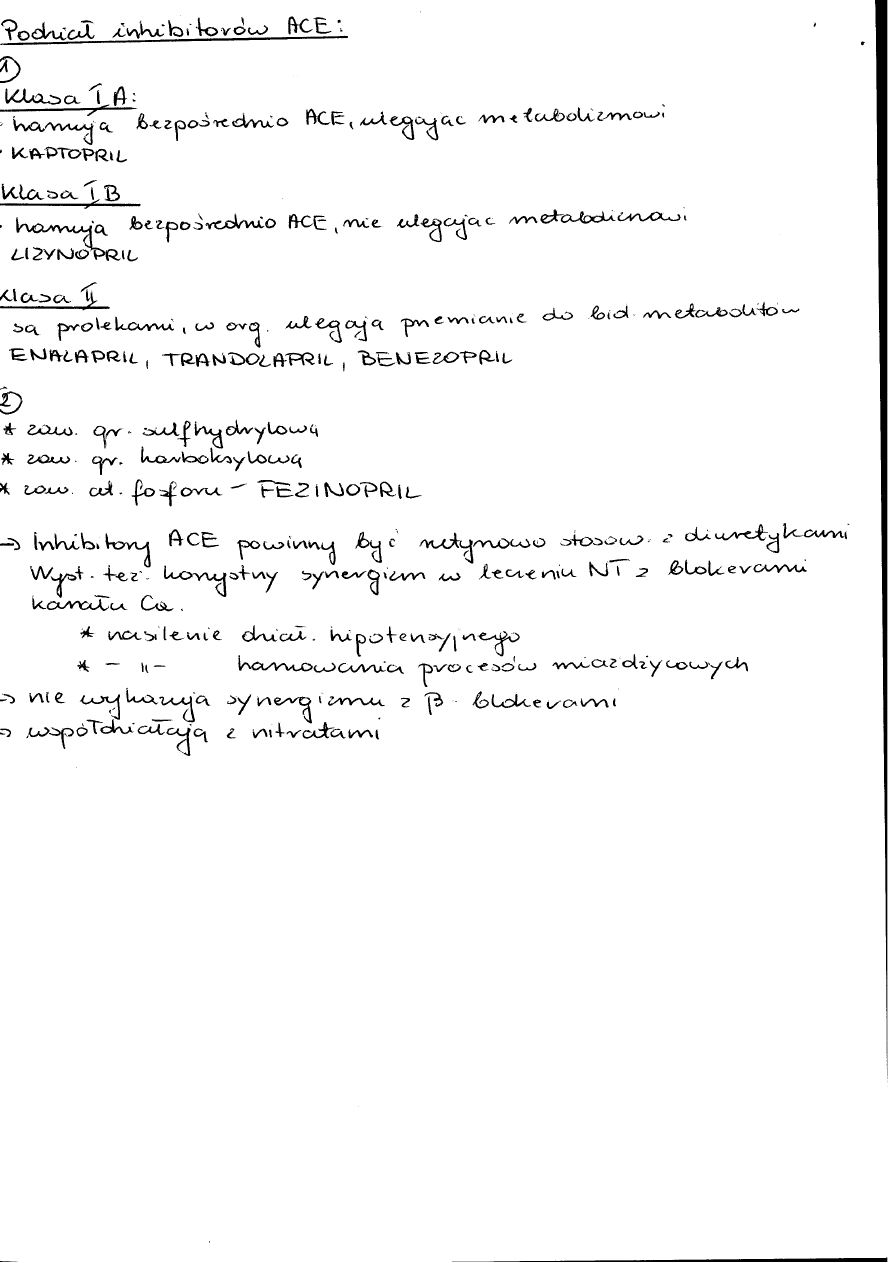 Podział inhibitorów ACE:
①
Klasa I A:
· hamują bezpośrednio ACE, ulegając metabolizmowi
· KAPTOPRIL
Klasa I B
· hamują bezpośrednio ACE, nie ulegając metabolizmowi
LIZYNOPRIL
Klasa II
są prolekami, w org. ulegają przemianie do biol. metabolitów
ENALAPRIL, TRANDOLAPRIL, BENEZOPRIL
②
* zaw. gr. sulfhydrylową
* zaw. gr. karboksylową
* zaw. at. fosforu – FEZINOPRIL
→ Inhibitory ACE powinny być rutynowo stosow. z diuretykami
Wyst. też. korzystny synergizm w leczeniu NT z blokerami
kanału Ca.
* nasilenie dział. hipotensyjnego
* – 11 – hamowania procesów miażdżycowych
→ nie wykazują synergizmu z β-blokerami
→ współdziałają z nitratami